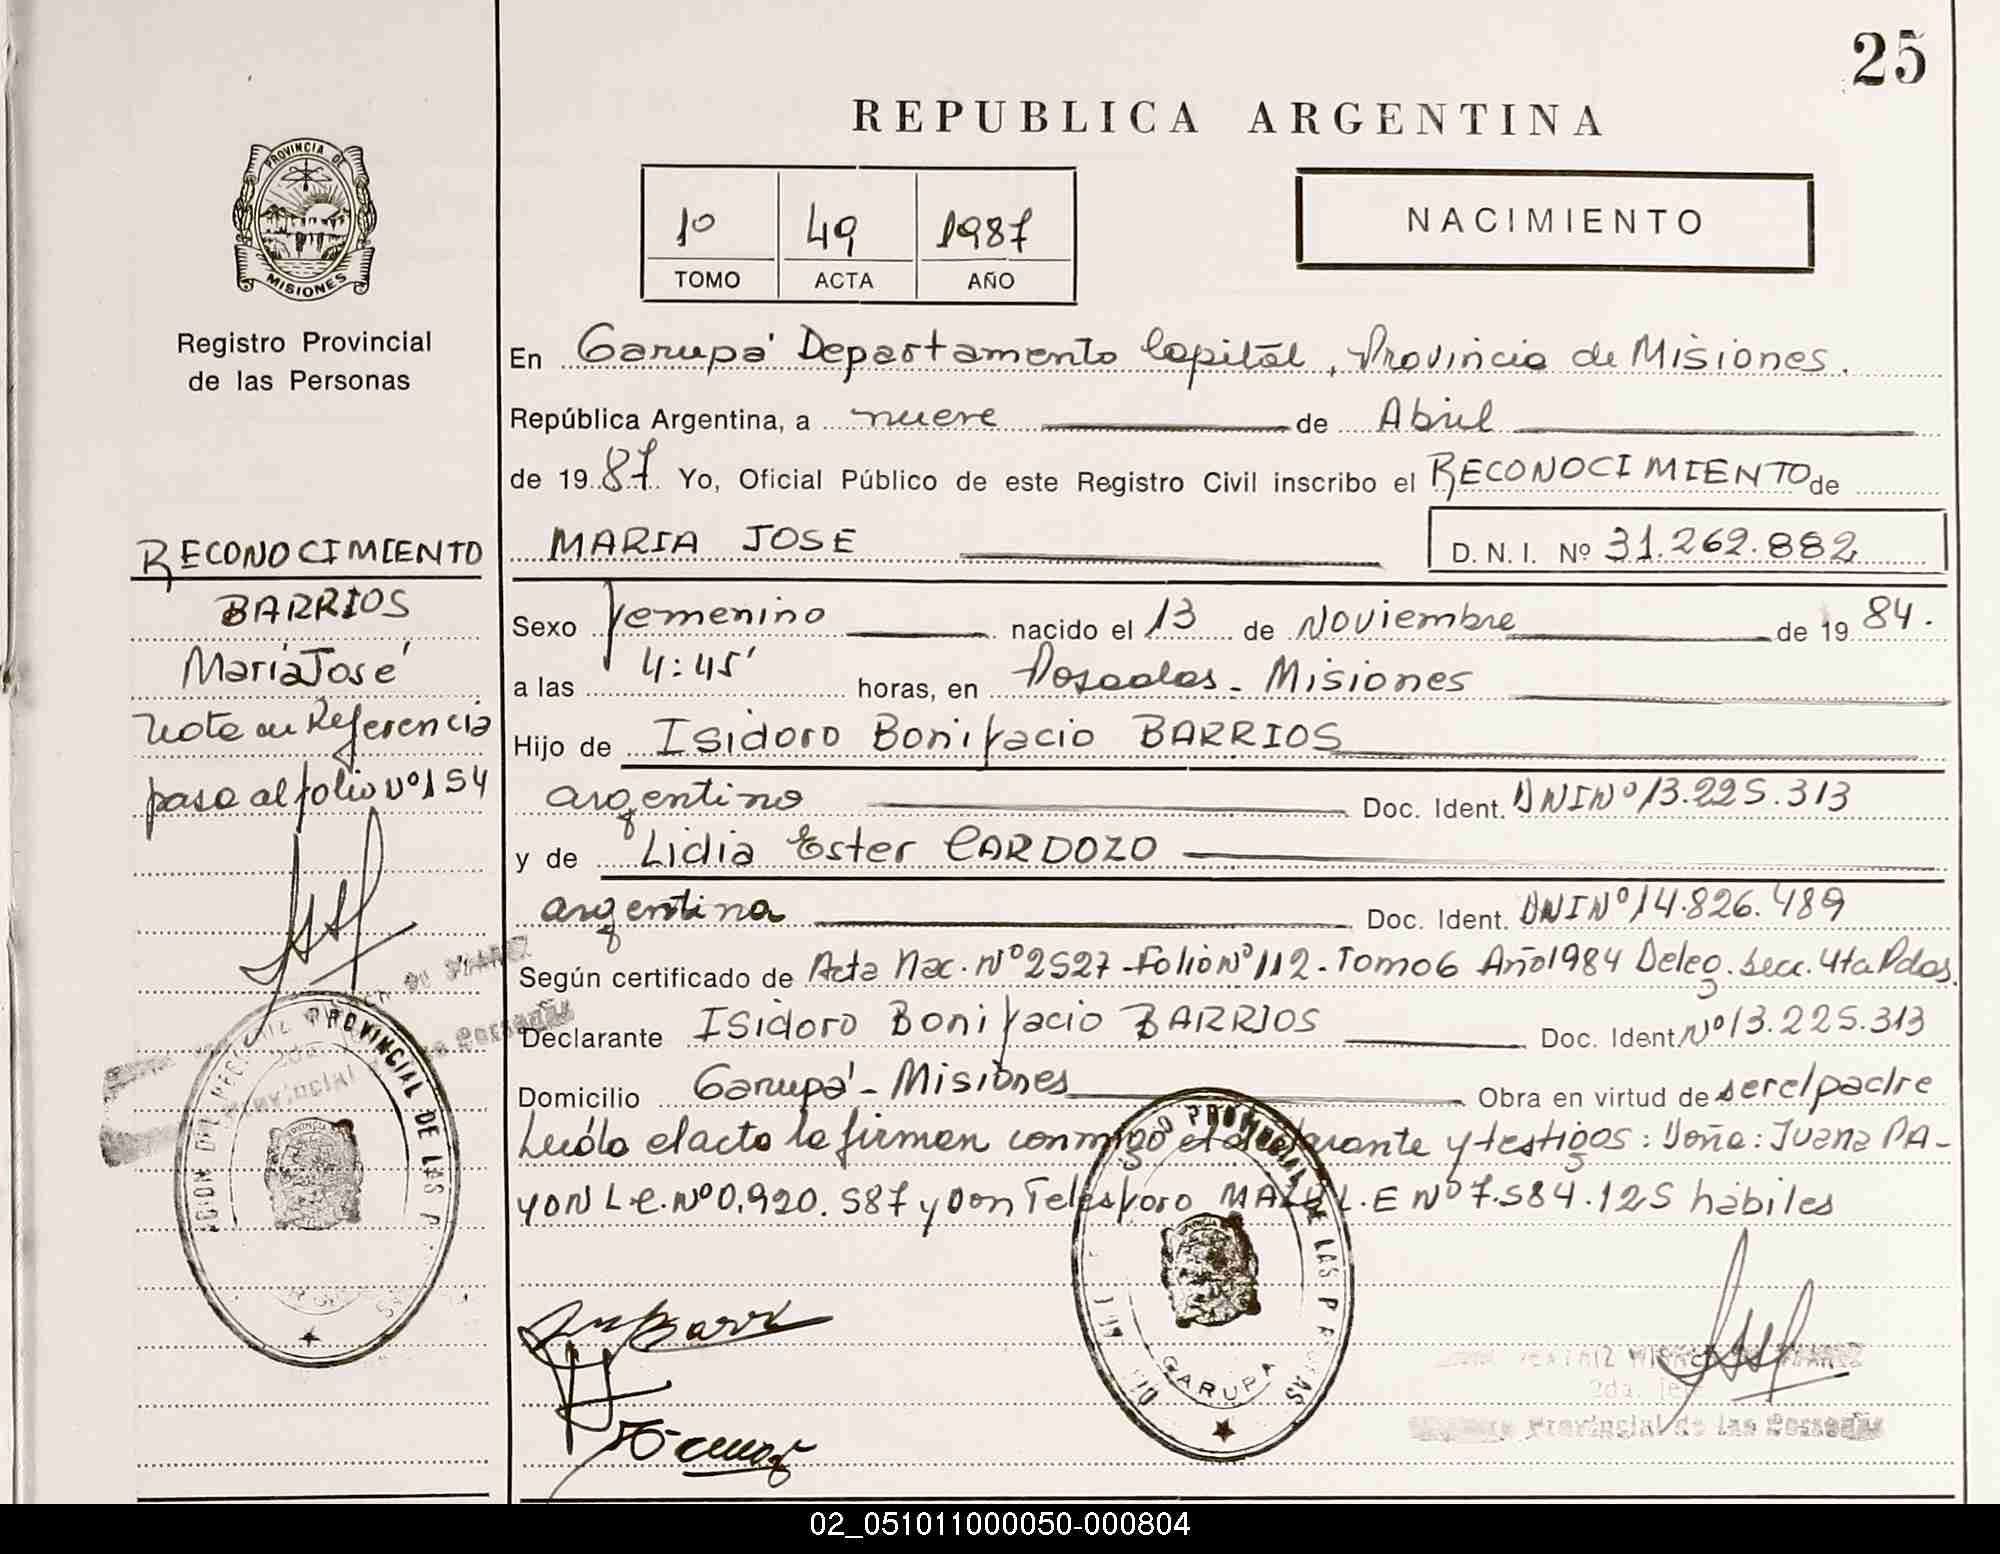 25
REPUBLICA ARGENTINA
PROVINCIA DE
MISIONES
Registro Provincial
de las Personas
1º 49 1987
TOMO ACTA AÑO
NACIMIENTO
En Garupá Departamento Capital, Provincia de Misiones.
República Argentina, a nueve de Abril
de 1987 Yo, Oficial Público de este Registro Civil inscribo el RECONOCIMIENTO de
MARIA JOSE D. N. I. Nº 31.262.882
Sexo femenino nacido el 13 de Noviembre de 1984.
a las 4:45' horas, en Posadas - Misiones
Hijo de Isidoro Bonifacio BARRIOS
argentino Doc. Ident. DNI Nº 13.225.313
y de Lidia Ester CARDOZO
argentina Doc. Ident. DNI Nº 14.826.489
Según certificado de Acta Nac. Nº 2527 - Folio Nº 112 - Tomo 6 Año 1984 Deleg. Secc. 4ta Pdas.
Declarante Isidoro Bonifacio BARRIOS Doc. Ident. Nº 13.225.313
Domicilio Garupá - Misiones Obra en virtud de ser el padre
Leída el acta la firman conmigo el declarante y testigos: Doña: Juana PA-
YON L.C. Nº 0.920.587 y Don Telésforo L.E Nº 7.584.125 hábiles
RECONOCIMIENTO
BARRIOS
María José
Nota en Referencia
pasa al folio Nº 154
PROVINCIAL DE LAS P
PROVINCIAL DE LAS PERSONAS
GARUPA
2da. jefe
Provincial de las Personas
02_051011000050-000804